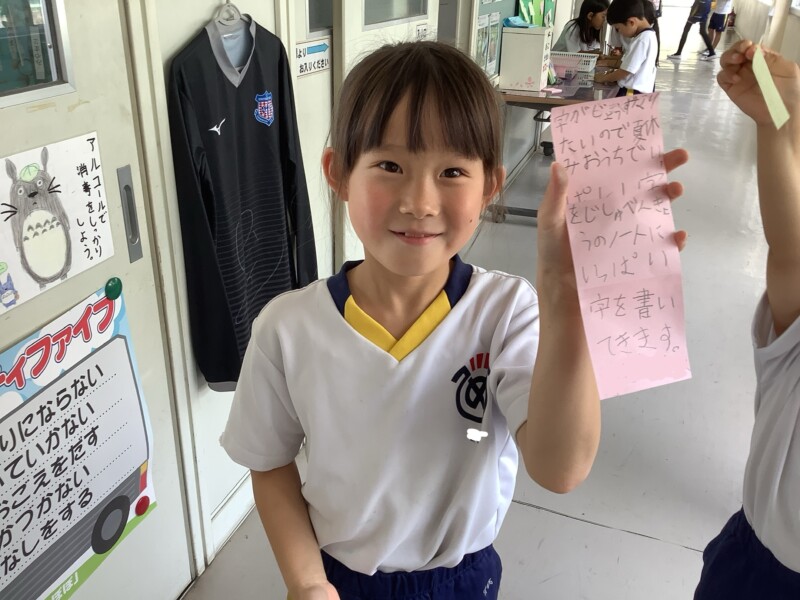 1より
お入りください
アルコールで
消毒をしっかり
しよう。
ィファイブ
りにならない
ていかない
おごえをだす
がつかない
なしをする
字がじょうずになり
たいので夏休
みおうちで
ぱい 字
をじしゅべんきょ
うのノートに
いっぱい
字を書い
てきます。